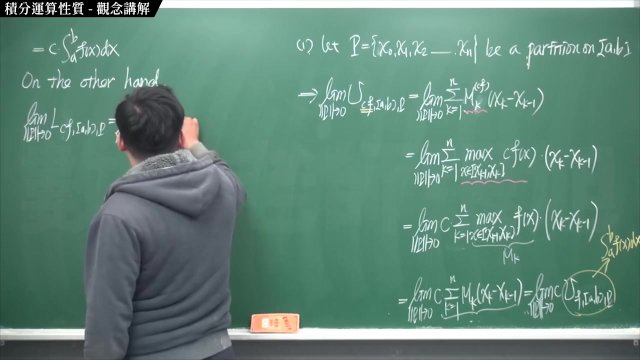 積分運算性質 - 觀念講解
= c·∫_a^b f(x)dx
On the other hand
lim_{||P||→0} L_{cf,[a,b],P} =
(1) let P = {x₀, x₁, x₂ ── xₙ} be a partition on [a,b]
→ lim_{||P||→0} U_{cf,[a,b],P} = lim_{||P||→0} Σ_{k=1}^{n} M_k^{(cf)} (x_k - x_{k-1})
= lim_{||P||→0} Σ_{k=1}^{n} max_{x∈[x_{k-1},x_k]} cf(x)·(x_k - x_{k-1})
= lim_{||P||→0} c Σ_{k=1}^{n} max_{x∈[x_{k-1},x_k]} f(x)·(x_k - x_{k-1})
M_k
∫_a^b f(x)dx
= lim_{||P||→0} c Σ_{k=1}^{n} M_k(x_k - x_{k-1}) = lim_{||P||→0} c U_{f,[a,b],P}